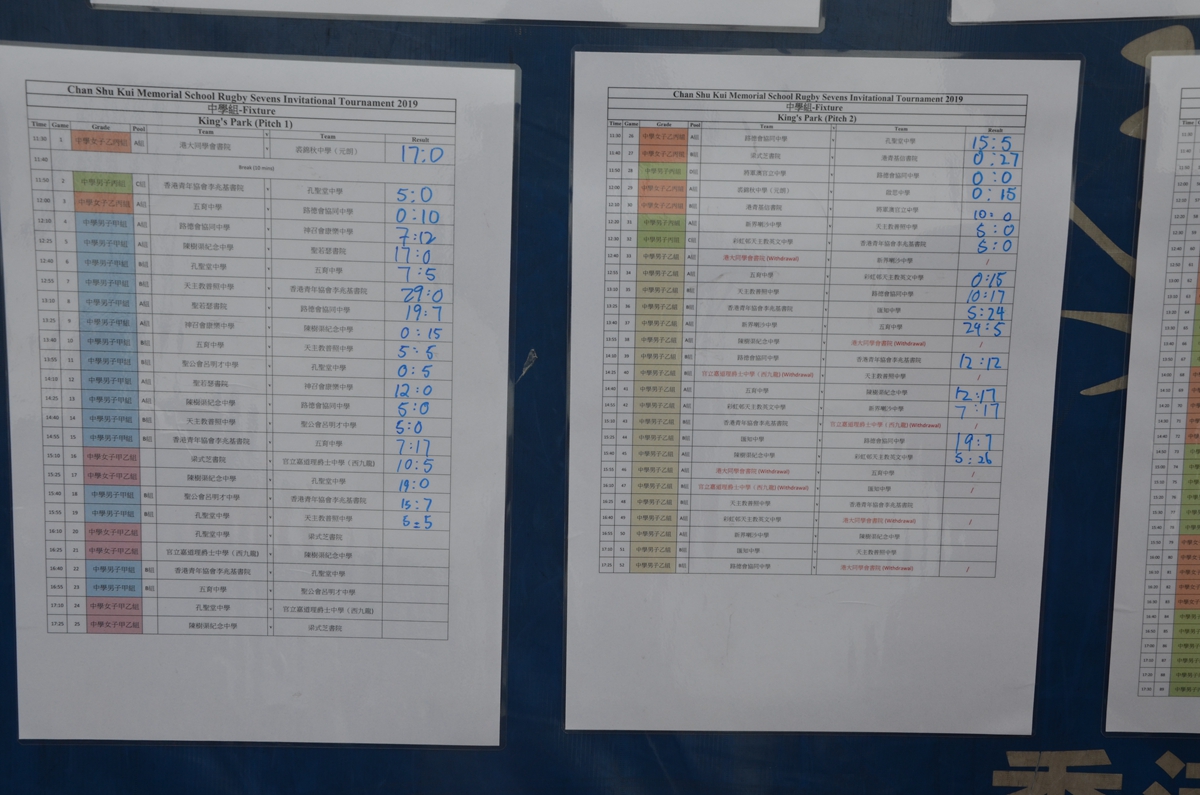 Chan Shu Kui Memorial School Rugby Sevens Invitational Tournament 2019
中學組-Fixture
King's Park (Pitch 1)
Time Game Grade Pool Team v Team Result
11:30 1 中學女子乙丙組 A組 港大同學會書院 v 裘錦秋中學（元朗） 17:0
11:40 Break (10 mins)
11:50 2 中學男子丙組 C組 香港青年協會李兆基書院 v 孔聖堂中學 5:0
12:00 3 中學女子乙丙組 A組 五育中學 v 路德會協同中學 0:10
12:10 4 中學男子甲組 A組 路德會協同中學 v 神召會康樂中學 7:12
12:25 5 中學男子甲組 A組 陳樹渠紀念中學 v 聖若瑟書院 17:0
12:40 6 中學男子甲組 B組 孔聖堂中學 v 五育中學 7:5
12:55 7 中學男子甲組 B組 天主教普照中學 v 香港青年協會李兆基書院 29:0
13:10 8 中學男子甲組 A組 聖若瑟書院 v 路德會協同中學 19:7
13:25 9 中學男子甲組 A組 神召會康樂中學 v 陳樹渠紀念中學 0:15
13:40 10 中學男子甲組 B組 五育中學 v 天主教普照中學 5:5
13:55 11 中學男子甲組 B組 聖公會呂明才中學 v 孔聖堂中學 0:5
14:10 12 中學男子甲組 A組 聖若瑟書院 v 神召會康樂中學 12:0
14:25 13 中學男子甲組 A組 陳樹渠紀念中學 v 路德會協同中學 5:0
14:40 14 中學男子甲組 B組 天主教普照中學 v 聖公會呂明才中學 5:0
14:55 15 中學男子甲組 B組 香港青年協會李兆基書院 v 五育中學 7:17
15:10 16 中學女子甲乙組 梁式芝書院 v 官立嘉道理爵士中學（西九龍） 10:5
15:25 17 中學女子甲乙組 陳樹渠紀念中學 v 孔聖堂中學 19:0
15:40 18 中學男子甲組 B組 聖公會呂明才中學 v 香港青年協會李兆基書院 15:7
15:55 19 中學男子甲組 B組 孔聖堂中學 v 天主教普照中學 5:5
16:10 20 中學女子甲乙組 孔聖堂中學 v 梁式芝書院
16:25 21 中學女子甲乙組 官立嘉道理爵士中學（西九龍） v 陳樹渠紀念中學
16:40 22 中學男子甲組 B組 香港青年協會李兆基書院 v 孔聖堂中學
16:55 23 中學男子甲組 B組 五育中學 v 聖公會呂明才中學
17:10 24 中學女子甲乙組 孔聖堂中學 v 官立嘉道理爵士中學（西九龍）
17:25 25 中學女子甲乙組 陳樹渠紀念中學 v 梁式芝書院
Chan Shu Kui Memorial School Rugby Sevens Invitational Tournament 2019
中學組-Fixture
King's Park (Pitch 2)
Time Game Grade Pool Team v Team Result
11:30 26 中學女子乙丙組 A組 路德會協同中學 v 孔聖堂中學 15:5
11:40 27 中學女子乙丙組 B組 梁式芝書院 v 港青基信書院 0:27
11:50 28 中學男子丙組 路德會協同中學 0:0
29 中學女子乙丙組 A組 裘錦秋中學（元朗） v 0:15
30 中學女子乙丙組 B組 港青基信書院 v 10:0
12:20 31 中學男子丙組 A組 新界喇沙中學 v 天主教普照中学 5:0
12:30 32 中學男子丙組 彩虹邨天主教英文中學 v 香港青年協會李兆基書院 5:0
12:40 33 中學男子乙組 A組 港大同學會書院 (Withdrawal) v 新界喇沙中學 /
12:55 34 中學男子乙組 A組 五育中學 v 彩虹邨天主教英文中學 0:15
13:10 35 中學男子乙組 B組 天主教普照中學 v 路德會協同中學 10:17
13:25 36 中學男子乙組 B組 香港青年協會李兆基書院 v 滙知中學 5:24
13:40 37 中學男子乙組 A組 新界喇沙中學 v 五育中學 24:5
38 中學男子乙組 A組 陳樹渠紀念中學 v 港大同學會書院 (Withdrawal) /
39 中學男子乙組 B組 路德會協同中學 v 香港青年協會李兆基書院 12:12
14:25 40 中學男子乙組 B組 官立嘉道理爵士中學（西九龍） (Withdrawal) v 天主教普照中學 /
14:40 41 中學男子乙組 A組 五育中學 v 陳樹渠紀念中學 12:17
42 中學男子乙組 A組 彩虹邨天主教英文中學 v 新界喇沙中學 7:17
15:10 43 中學男子乙組 B組 香港青年協會李兆基書院 v 官立嘉道理爵士中學（西九龍） (Withdrawal) /
44 中學男子乙組 B組 滙知中學 v 路德會協同中學 19:7
45 中學男子乙組 A組 陳樹渠紀念中學 v 彩虹邨天主教英文中學 5:26
15:55 46 中學男子乙組 A組 港大同學會書院 (Withdrawal) v 五育中學 /
16:10 47 中學男子乙組 B組 官立嘉道理爵士中學（西九龍） (Withdrawal) v 滙知中學 /
16:25 48 中學男子乙組 B組 天主教普照中學 v 香港青年協會李兆基書院
16:40 49 中學男子乙組 A組 彩虹邨天主教英文中學 v 港大同學會書院 (Withdrawal) /
50 中學男子乙組 A組 新界喇沙中學 v 陳樹渠紀念中學
51 中學男子乙組 B組 滙知中學 v 天主教普照中學
52 中學男子乙組 B組 路德會協同中學 v 港大同學會書院 (Withdrawal) /